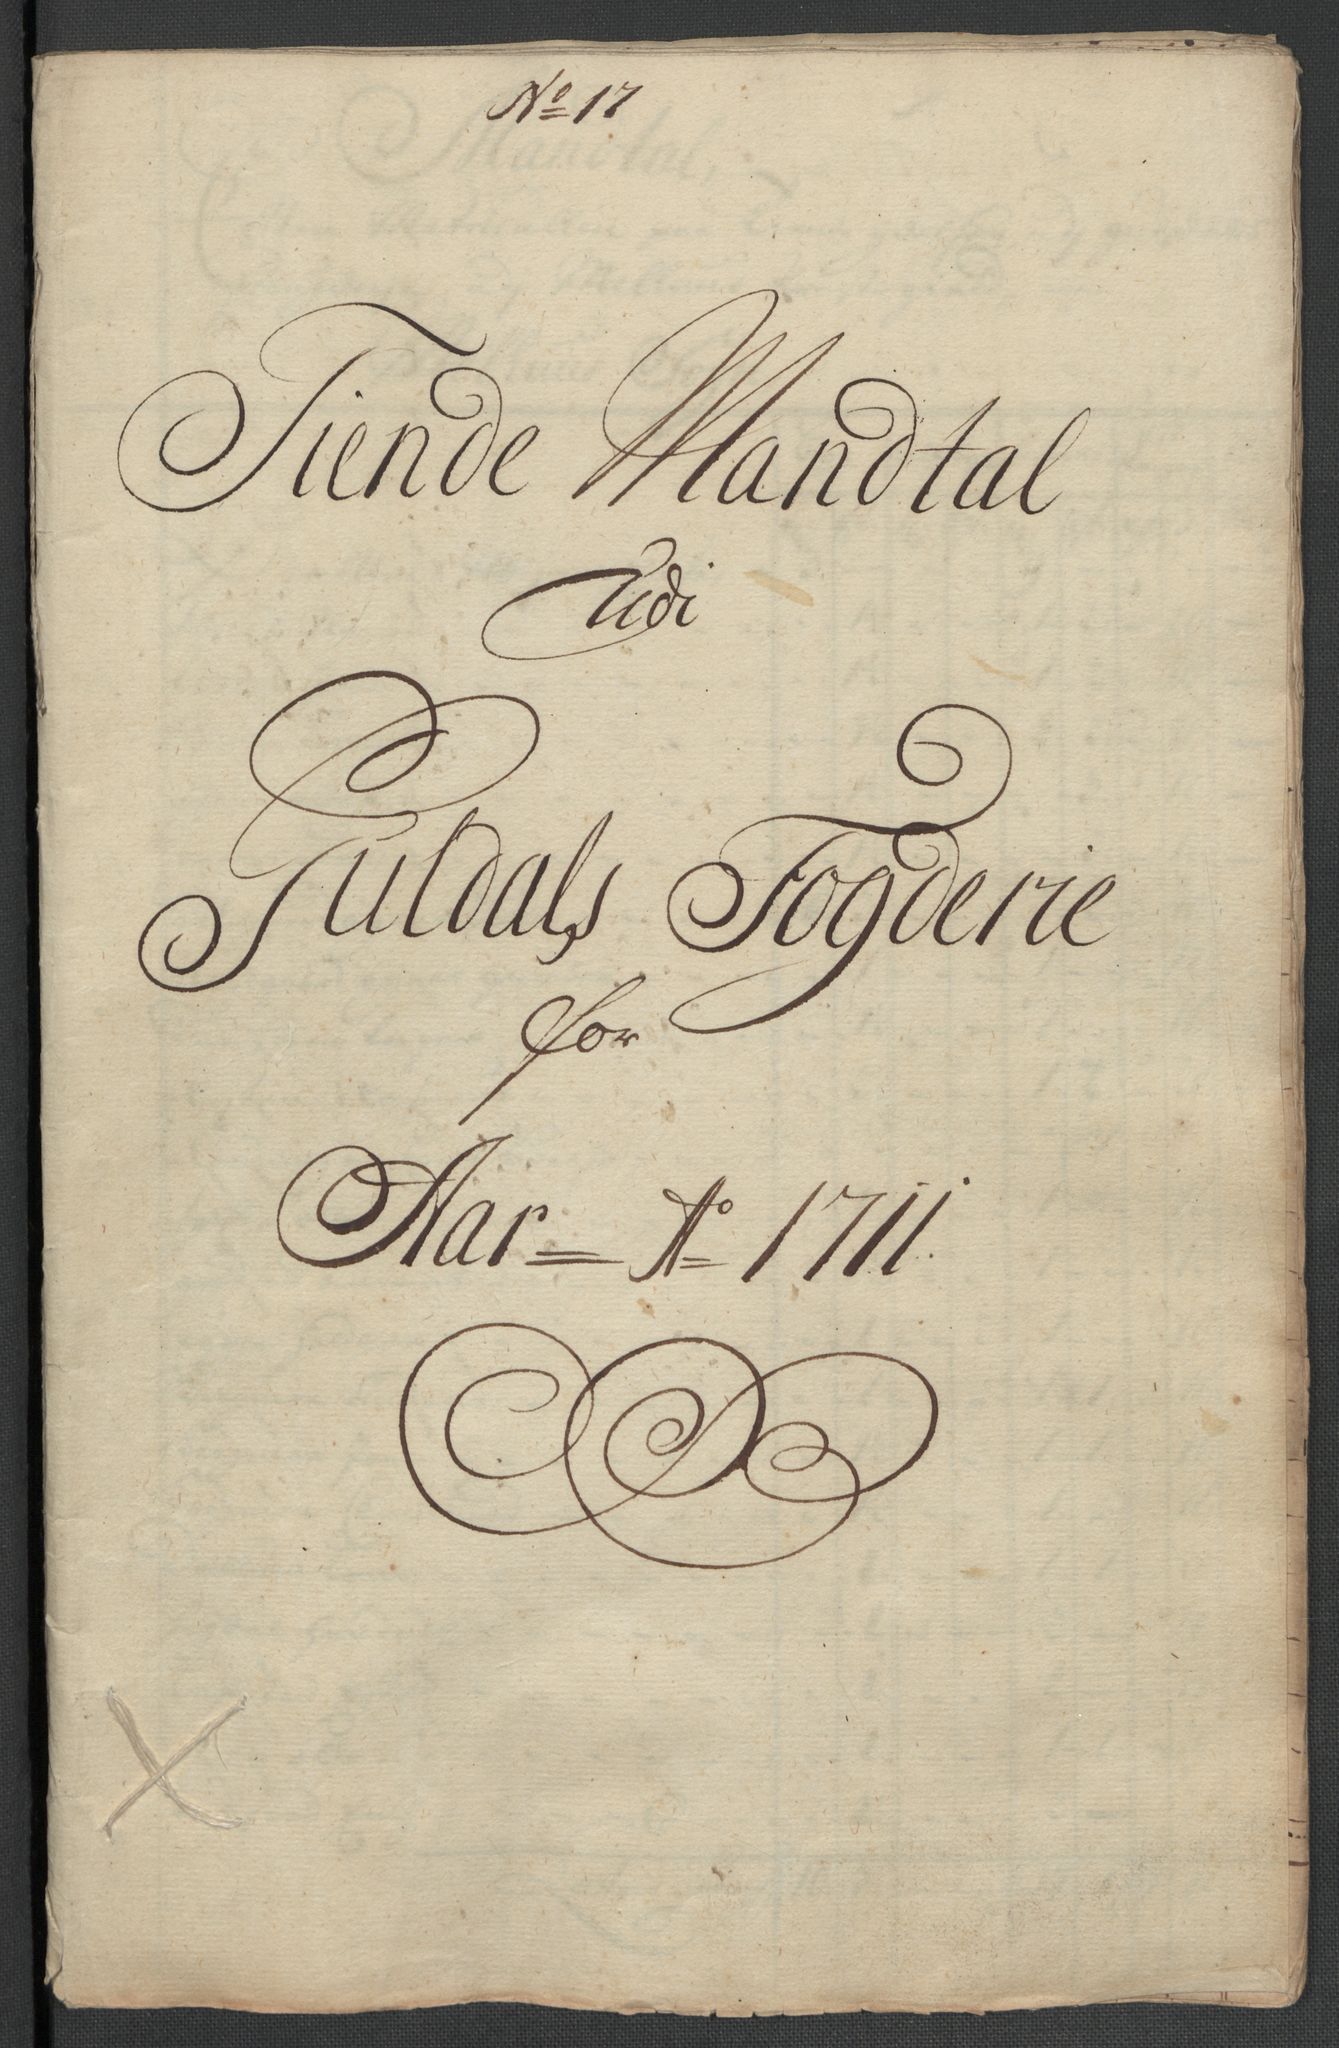 No 17
Tiende Mandtal
Udi
Guldals Fogderie
for
Aar Ao 1711.